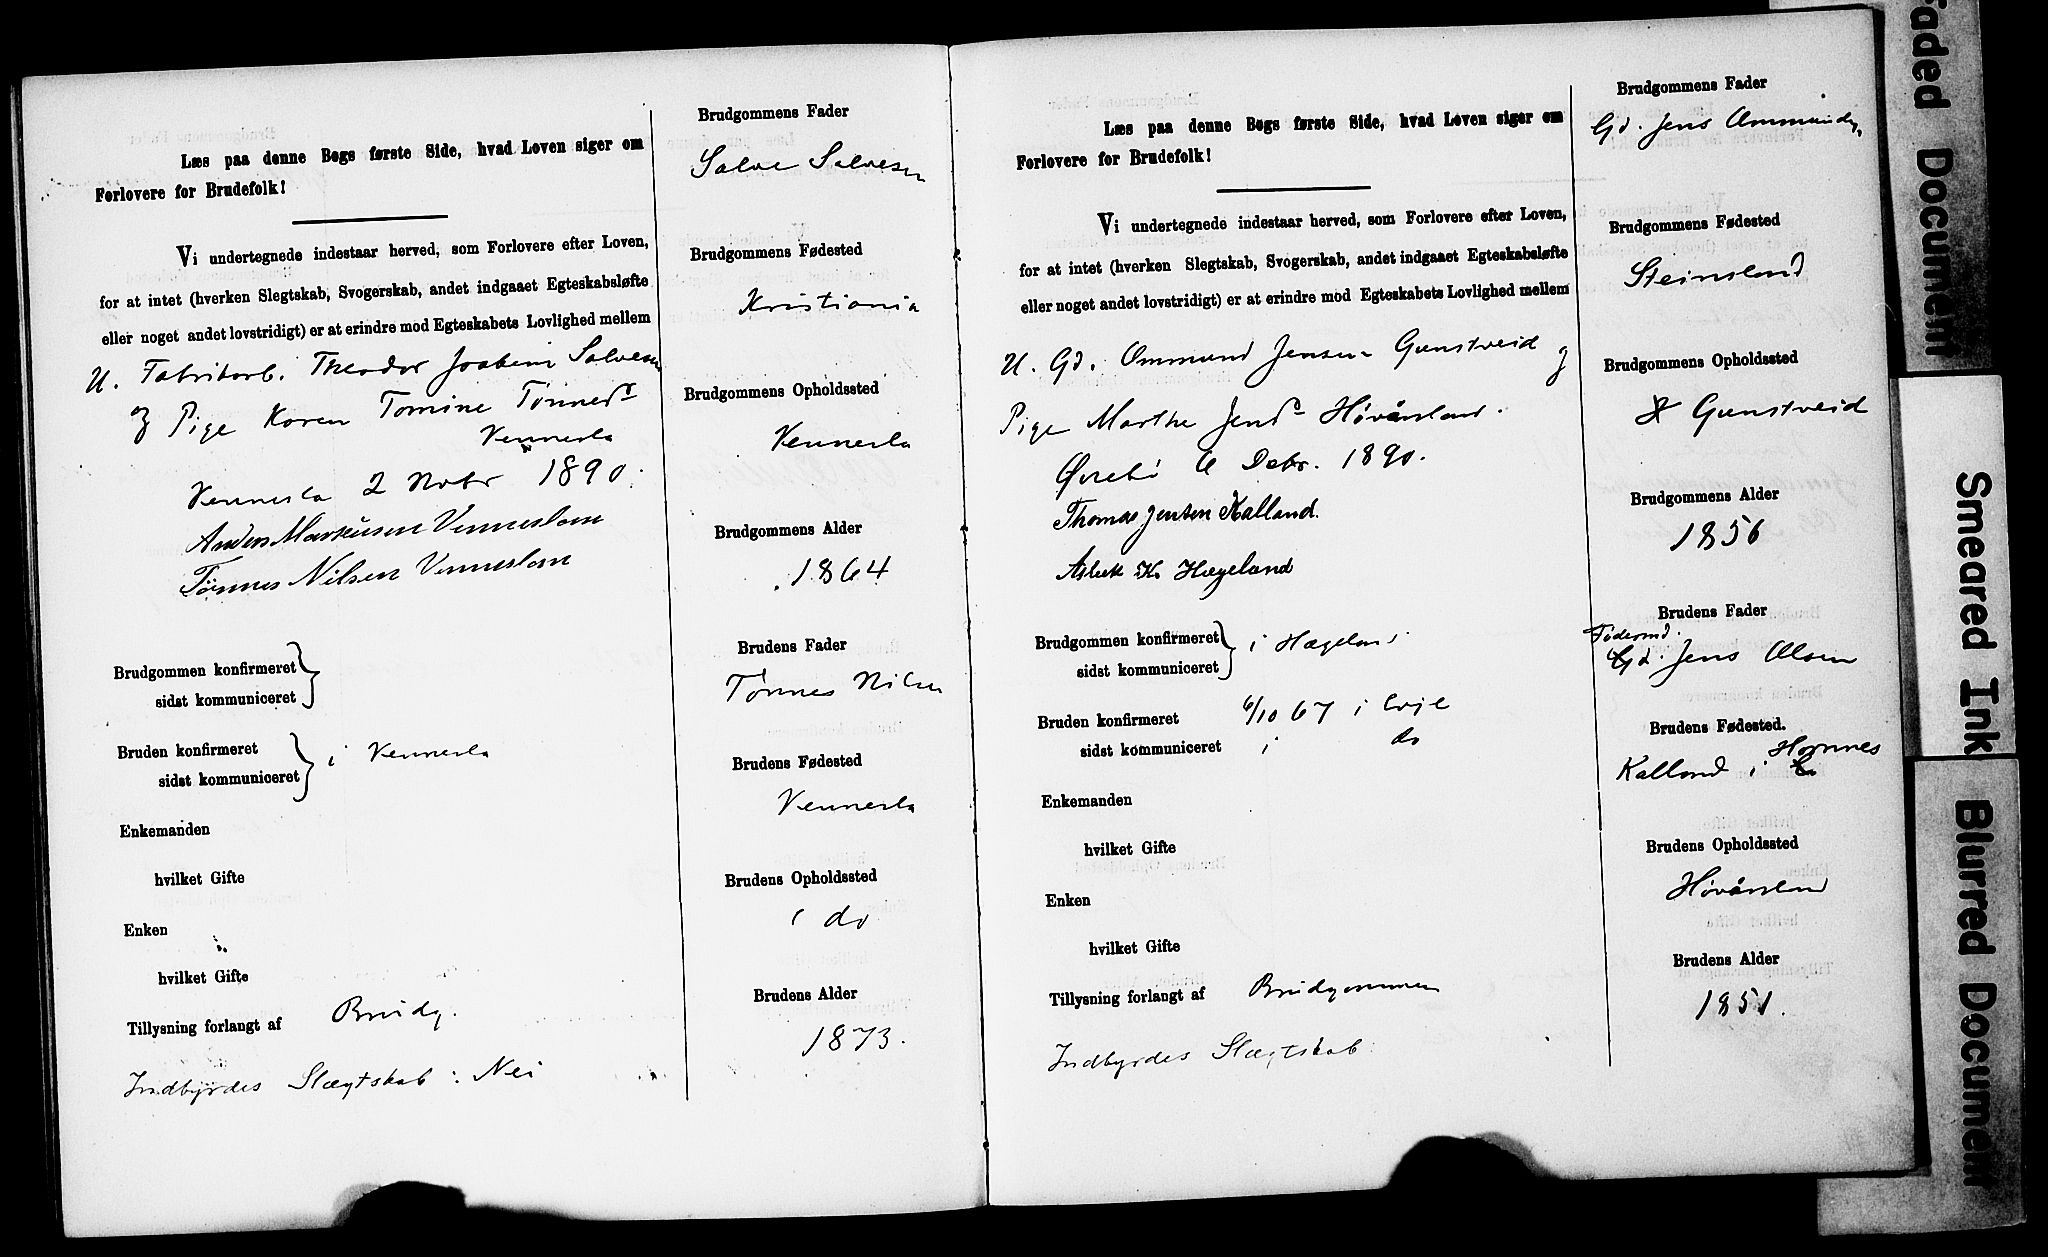 Læs paa denne Bogs første Side, hvad Loven siger om
Forlovere for Brudefolk!
Vi undertegnede indestaar herved, som Forlovere efter Loven,
for at intet (hverken Slegtskab, Svogerskab, andet indgaaet Egteskabsløfte
eller noget andet lovstridigt) er at erindre mod Egteskabets Lovlighed mellem
U. Fabrikarb. Theodor Joakim Salvesen
og Pige Karen Tomine Tønnesd
Vennesla
Vennesla 2 Novbr 1890.
Anders Markusen Venneslam
Tønnes Nilsen Venneslam
Brudgommen konfirmeret
sidst kommuniceret
Bruden konfirmeret
sidst kommuniceret
i Vennesla
Enkemanden
hvilket Gifte
Enken
hvilket Gifte
Tillysning forlangt af Brudg.
Indbyrdes Slægtskab: Nei
Brudgommens Fader
Salve Salvesen
Brudgommens Fødested
Kristiania
Brudgommens Opholdssted
Vennesla
Brudgommens Alder
1864
Brudens Fader
Tønnes Nilsen
Brudens Fødested
Vennesla
Brudens Opholdssted
i do
Brudens Alder
1873.
Læs paa denne Bogs første Side, hvad Loven siger om
Forlovere for Brudefolk!
Vi undertegnede indestaar herved, som Forlovere efter Loven,
for at intet (hverken Slegtskab, Svogerskab, andet indgaaet Egteskabsløfte
eller noget andet lovstridigt) er at erindre mod Egteskabets Lovlighed mellem
U. Gd. Ommund Jensen Gunstveid og
Pige Marthe Jensd Høvårsland.
Øvrebø 6 Debr. 1890.
Thomas Jensen Kalland.
Aslak K. Hægeland
Brudgommen konfirmeret
sidst kommuniceret
i Hægeland
Bruden konfirmeret 6/10 67 i Evje
sidst kommuniceret i do
Enkemanden
hvilket Gifte
Enken
hvilket Gifte
Tillysning forlangt af Brudgommen
Indbyrdes Slægtskab
Brudgommens Fader
Gd. Jens Ommunds.
Brudgommens Fødested
Steinsland
Brudgommens Opholdssted
Gunstveid
Brudgommens Alder
1856
Brudens Fader
Fødermd.
Gd. Jens Olsen
Brudens Fødested.
Hornnes
Kalland i
Brudens Opholdssted
Høvårsland
Brudens Alder
1851.
Faded Document
Smeared Ink
Blurred Document